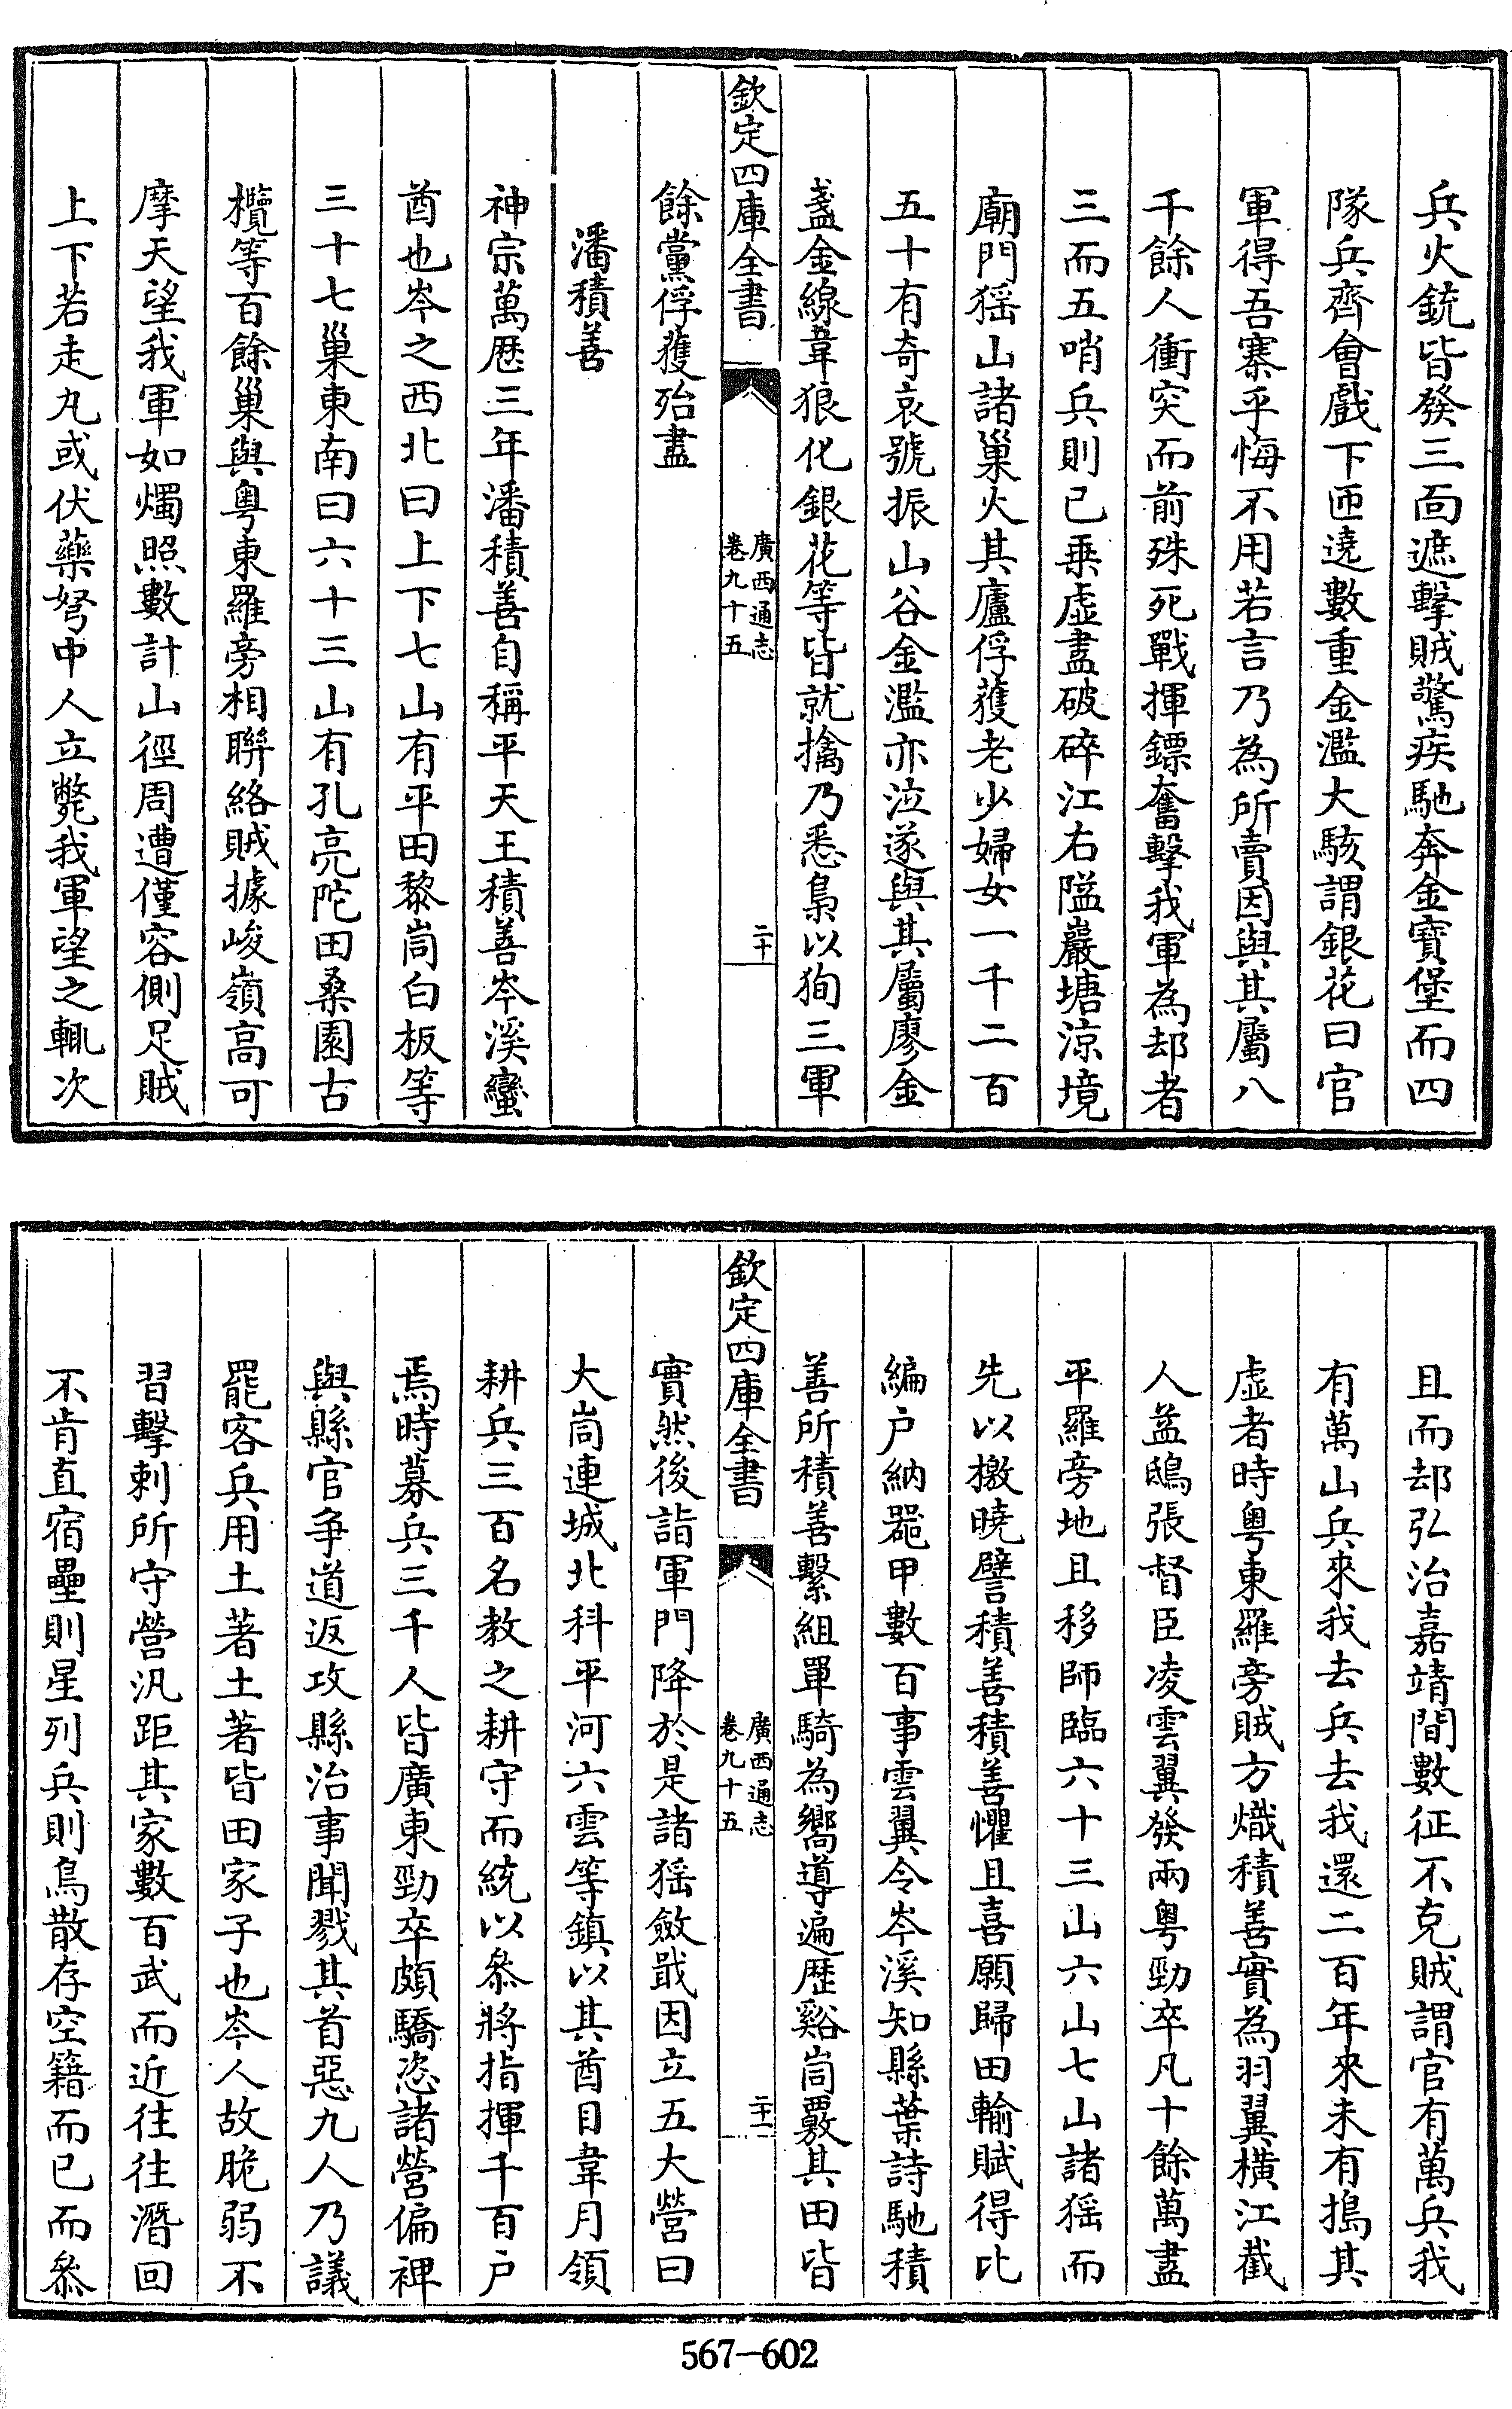 兵火銃皆發三面遮擊賊驚疾馳奔金寶堡而四
隊兵齊會戲下匝遶數重金濫大駭謂銀花曰官
軍得吾寨乎悔不用若言乃為所賣因與其屬八
千餘人衝突而前殊死戰揮鏢奮擊我軍為却者
三而五哨兵則已乗虛盡破碎江右隘巖塘涼境
廟門猺山諸巢火其廬俘獲老少婦女一千二百
五十有奇哀號振山谷金濫亦泣遂與其屬廖金
盞金線韋狼化銀花等皆就擒乃悉梟以狥三軍
欽定四庫全書
廣西通志
卷九十五
二十
餘黨俘獲殆盡
潘積善
神宗萬歴三年潘積善自稱平天王積善岑溪蠻
酋也岑之西北曰上下七山有平田黎峝白板等
三十七巢東南曰六十三山有孔亮陀田桑園古
欖等百餘巢與粤東羅旁相聨絡賊據峻嶺高可
摩天望我軍如燭照數計山徑周遭僅容側足賊
上下若走丸或伏藥弩中人立斃我軍望之輒次
且而却弘治嘉靖間數征不克賊謂官有萬兵我
有萬山兵來我去兵去我還二百年來未有搗其
虛者時粤東羅旁賊方熾積善實為羽翼橫江截
人益鴟張督臣凌雲翼發兩粤勁卒凡十餘萬盡
平羅旁地且移師臨六十三山六山七山諸猺而
先以檄曉譬積善積善懼且喜願歸田輸賦得比
編户納器甲數百事雲翼令岑溪知縣葉詩馳積
善所積善繫組單騎為嚮導遍歴谿峝覈其田皆
欽定四庫全書
廣西通志
卷九十五
二十一
實然後詣軍門降於是諸猺斂戢因立五大營曰
大峝連城北科平河六雲等鎮以其酋目韋月領
耕兵三百名教之耕守而統以叅將指揮千百户
焉時募兵三千人皆廣東勁卒頗驕恣諸營偏裨
與縣官争道返攻縣治事聞戮其首惡九人乃議
罷客兵用土著土著皆田家子也岑人故脆弱不
習擊刺所守營汛距其家數百武而近往往潛回
不肯直宿壘則星列兵則鳥散存空籍而已而叅
567—602